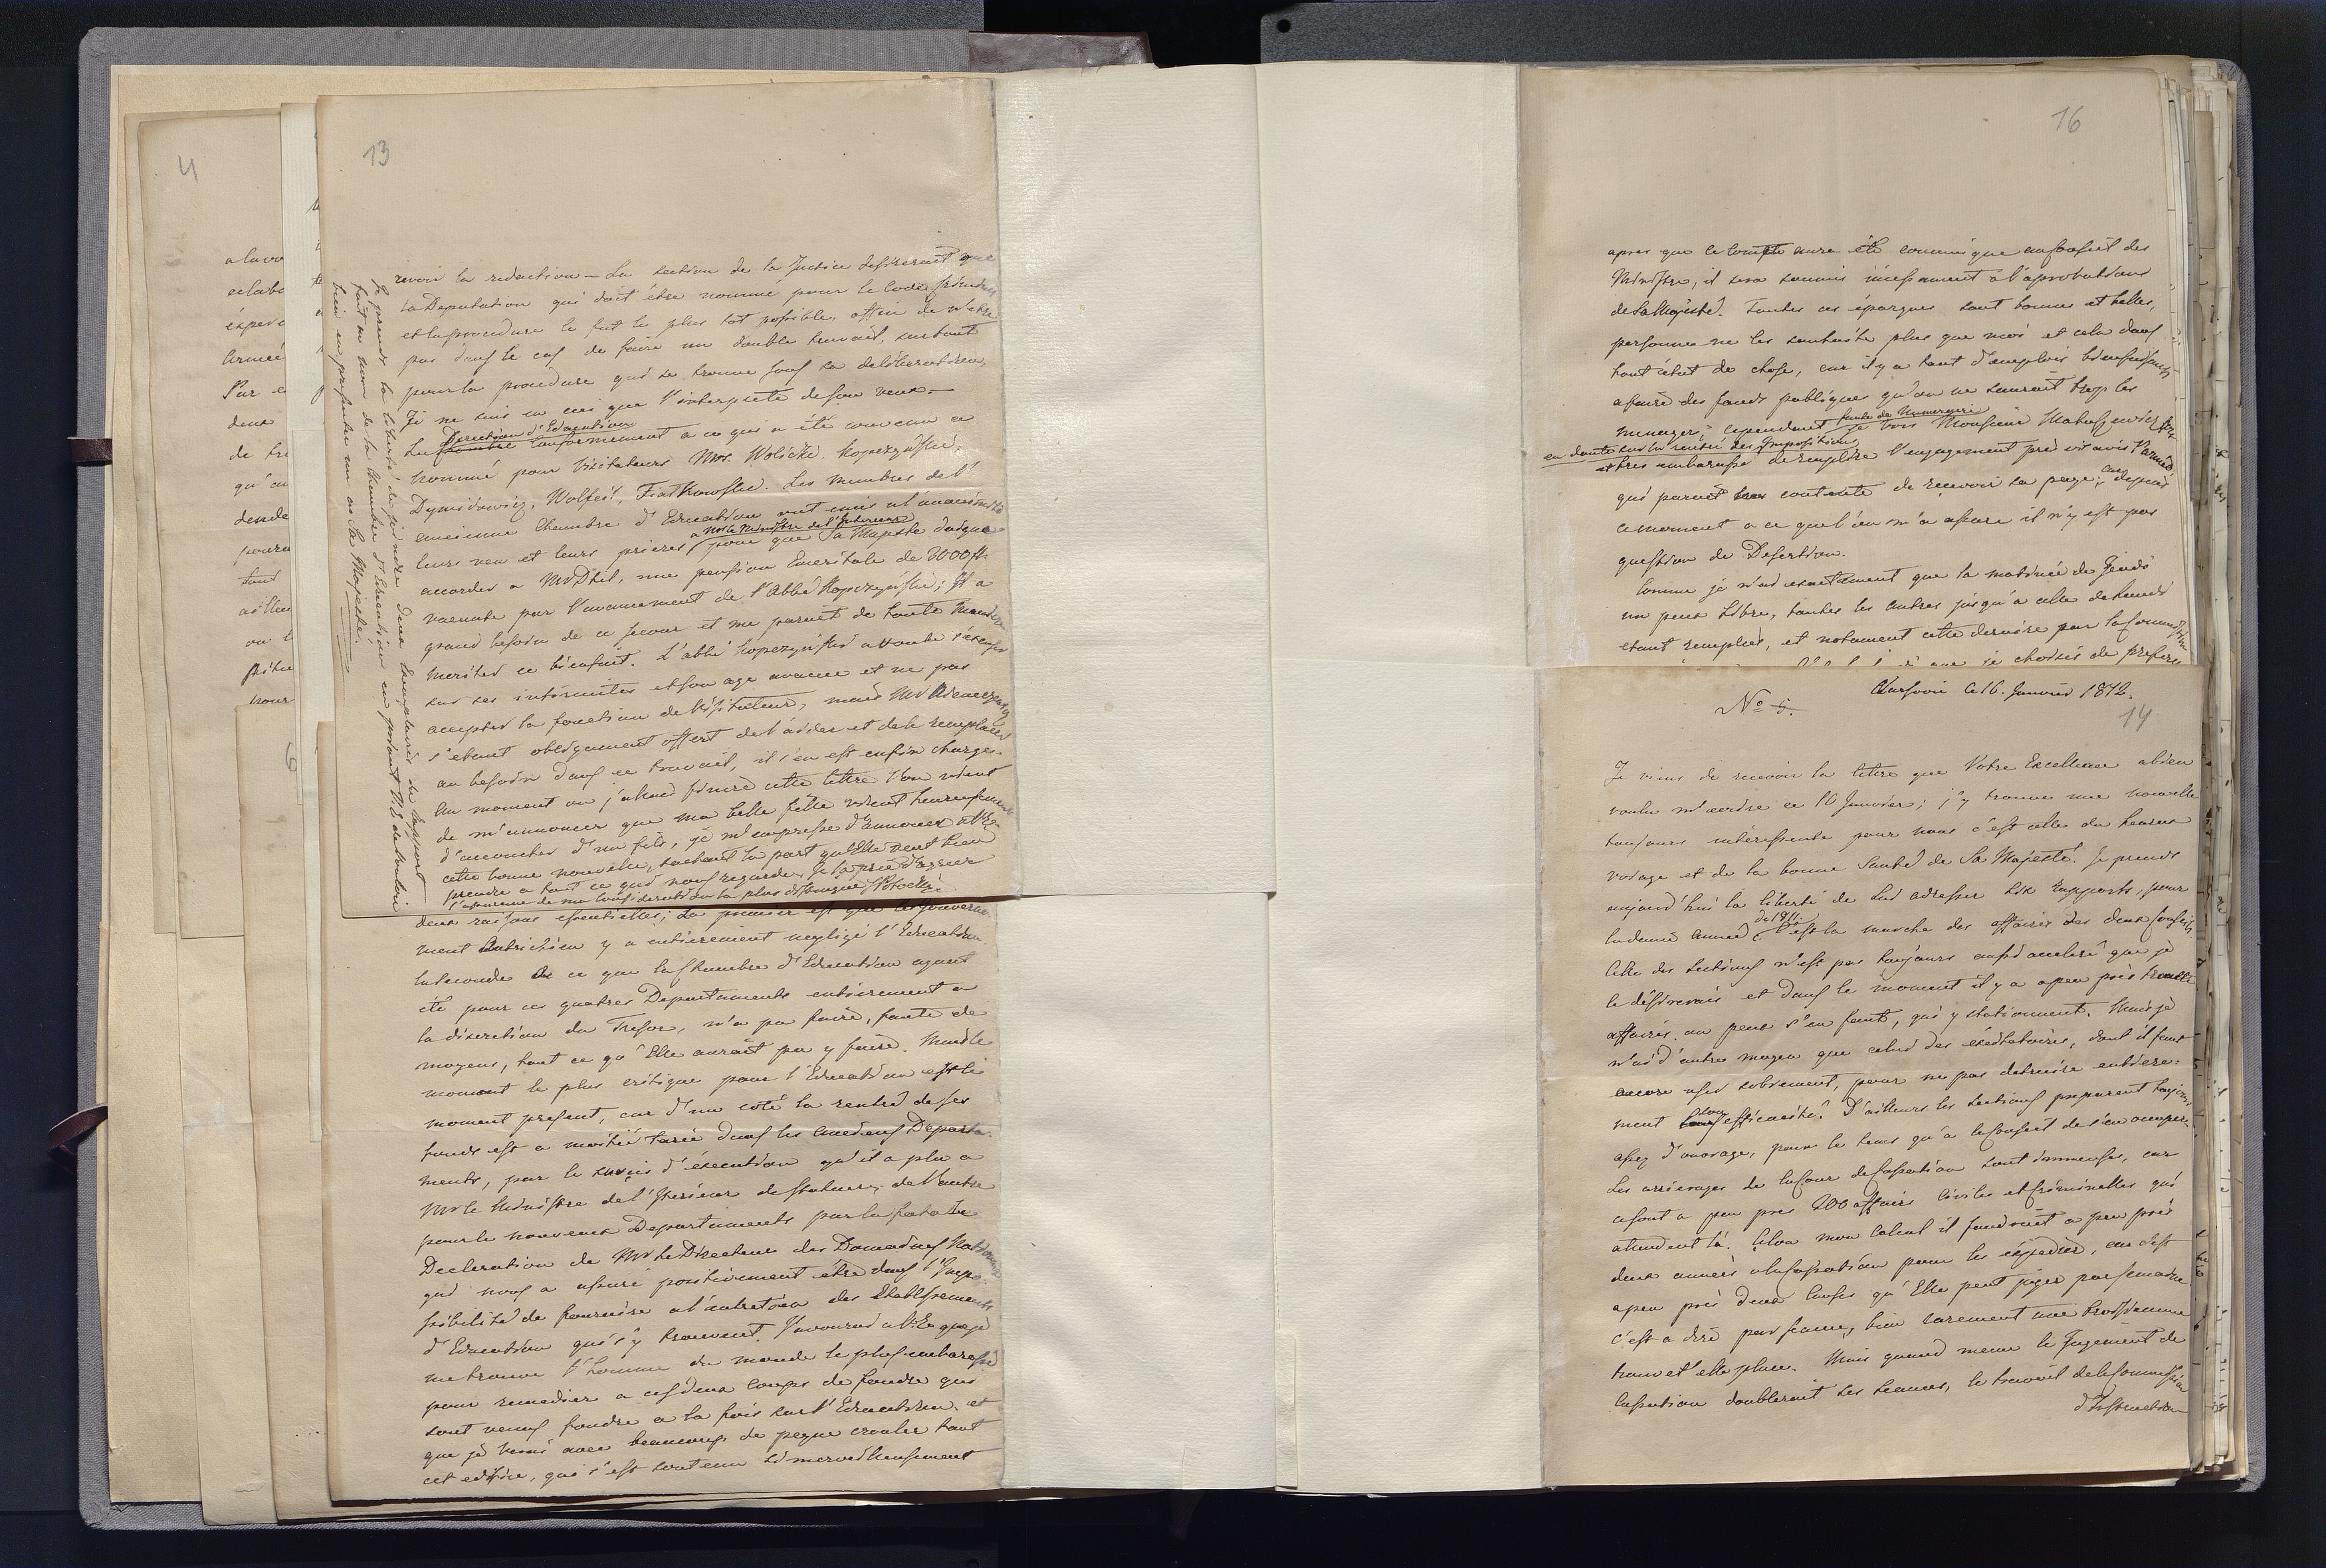 4
13
revoir la redaction — La section de la Justice desireroit que
la Deputation qui doit être nommé pour le Code
et la procedure le fut le plus tot possible, affin de n'etre
pas dans le cas de faire un double travail, surtout
pour la procedure qui se trouve sous sa deliberation,
Je ne suis en ceci que l'interprete de son voeux —
Direction d'Education
La Chambre Conformement a ce qui a été convenu a
nommé pour Visitateurs Mrs. Wolicki. Kopczyński,
Dymidowicz, Wolfeil, Fiatkowski. Les membres de l'
ancienne Chambre d'Education ont émis a l'unanimité
a Mr le Ministre de l'Interieur
leurs voeu et leurs prieres pour que Sa Majesté daigne
accorder a Mr Dhil, une pension Emeritale de 3000 fl.
vacante par l'avancement de l'Abbé Kopczyński; Il a
grand besoin de ce secour et me paroit de toute maniere
meriter ce bienfait. L'abbé Kopczyński a voulu s'excuser
sur ses infirmites et son age avancé et ne pas
accepter la fonction de Visitateur, mais Mr
s'etant obligeament offert de l'aider et de le remplacer
au besoin dans ce travail, il s'en est enfin chargé.
Au moment ou j'allais finire cette lettre l'on vient
de m'annoncer que ma belle fille vient heureusement
d'accoucher d'un fils, je m'empresse d'annoncer a V. E.
cette bonne nouvelle, sachant la part qu'Elle veut bien
prendre a tout ce qui nous regarde, Je la prie d'agreer
l'assurance de ma consideration la plus distinguée Potocki.
Je prends la liberté de joindre deux exemplaires du Rapport
fait au nom de la Chambre d'Education en priant V. E. de vouloir
bien en presenter un a Sa Majesté.
deux raisons essentielles; La premier est que le Gouverne-
ment Autrichien y a entierement negligé l'Education.
la seconde de ce que la Chambre d'Education ayant
été pour ces quatres Departaments entierement a
la discretion du Tresor, n'a pu faire, faute de
moyens, tout ce qu'Elle auroit pu y faire. Mais le
moment le plus critique pour l'Education est le
moment present, car d'un coté la rentré de ses
fonds est a moitié tarie dans les anciens Departa-
ments, par le sursis d'execution qu'il a plu a
Mr le Ministre de l'Interieur de statuer; de l'autre
pour le nouveaux Departaments par la fatale
Declaration de Mr le Directeur des Domaines Nationaux
qui nous a assuré positivement être dans l'impo-
sibilité de fournire a l'entretien des Etablissements
d'Education qui s'y trouvent. J'avouerai a V. E. que je
me trouve l'homme du monde le plus embarassé
pour remedier a ces deux coups de foudre qui
sont venus fondre a la fois sur l'Education. et
que je verrai avec beaucoup de peyne crouler tout
cet edifice, qui s'est soutenu si merveilleusement
16
apres que le compte aura été communiqué au Conseil des
Ministre, il sera soumis incessament a l'aprobation
de Sa Majesté. Toutes ces épargnes sont bonnes et belles,
personne ne les souhaite plus que moi et cela dans
tout état de chose, car il y a tant d'emplois bienfaisants
a faire des fonds publiques qu'on ne sauroit trop les
faute de Numeraire
menager; cependant je vois Monsieur Matuszewicz
en doute sur la rentré des Impositions
et tres embarassé de remplire l'engagement pris vis avis l'armée
qui paroit contente de reçevoir sa paye; car depuis
ce moment a ce que l'on m'a assuré il n'y est pas
question de Desertion.
Comme je n'ai exactement que la matinée de Jeudi
un peu libre, toutes les autres jusqu'a celle de
etant remplies, et notament cette derniere par la Commission
je choisis de
Varsovie Ce 16. Janvier 1812.
No 5.
14
Je viens de recevoir la lettre que Votre Excellence a bien
voulu m'ecrire ce 10 Janvier; j'y trouve une nouvelle
toujours intéressente pour nous c'est celle du heureux
voiage et de la bonne Santé de Sa Majesté. Je prends
aujourd'hui la liberté de Lui adresser six Rapports, pour
de 1811.
la demie année C'est la marche des affaires des deux Conseils
Celle des Sections n'est pas toujours aussi acceleré que je
le désirerais et dans le moment il y a apeu près trente
affaires. ou peux s'en faut, qui y stationnent. Mais je
n'ai d'autre moyen que celui des excitatoires, dont il faut
encore user sobrement, pour ne pas detruire entiere-
ment leur efficacité. D'ailleurs les Sections preparent toujours
assez d'ouvrage, pour le tems qu'a le Conseil de s'en occuper.
Les arrierages de la Cour de Cassation sont immenses, car
a peu pres 200 affaires Civiles et Criminelles qui
atendent là. Selon mon calcul il faudroit a peu près
deux années a la Cassation pour les éxpedier, car c'est
apeu près deux causes qu'Elle peut juger par semaine
c'est a dire par seance, bien rarement une troisiemme
trouve t elle place. Mais quand meme le Jugement de
Cassation doubleroit ses seances, le travail de la Commission
d'Instruction